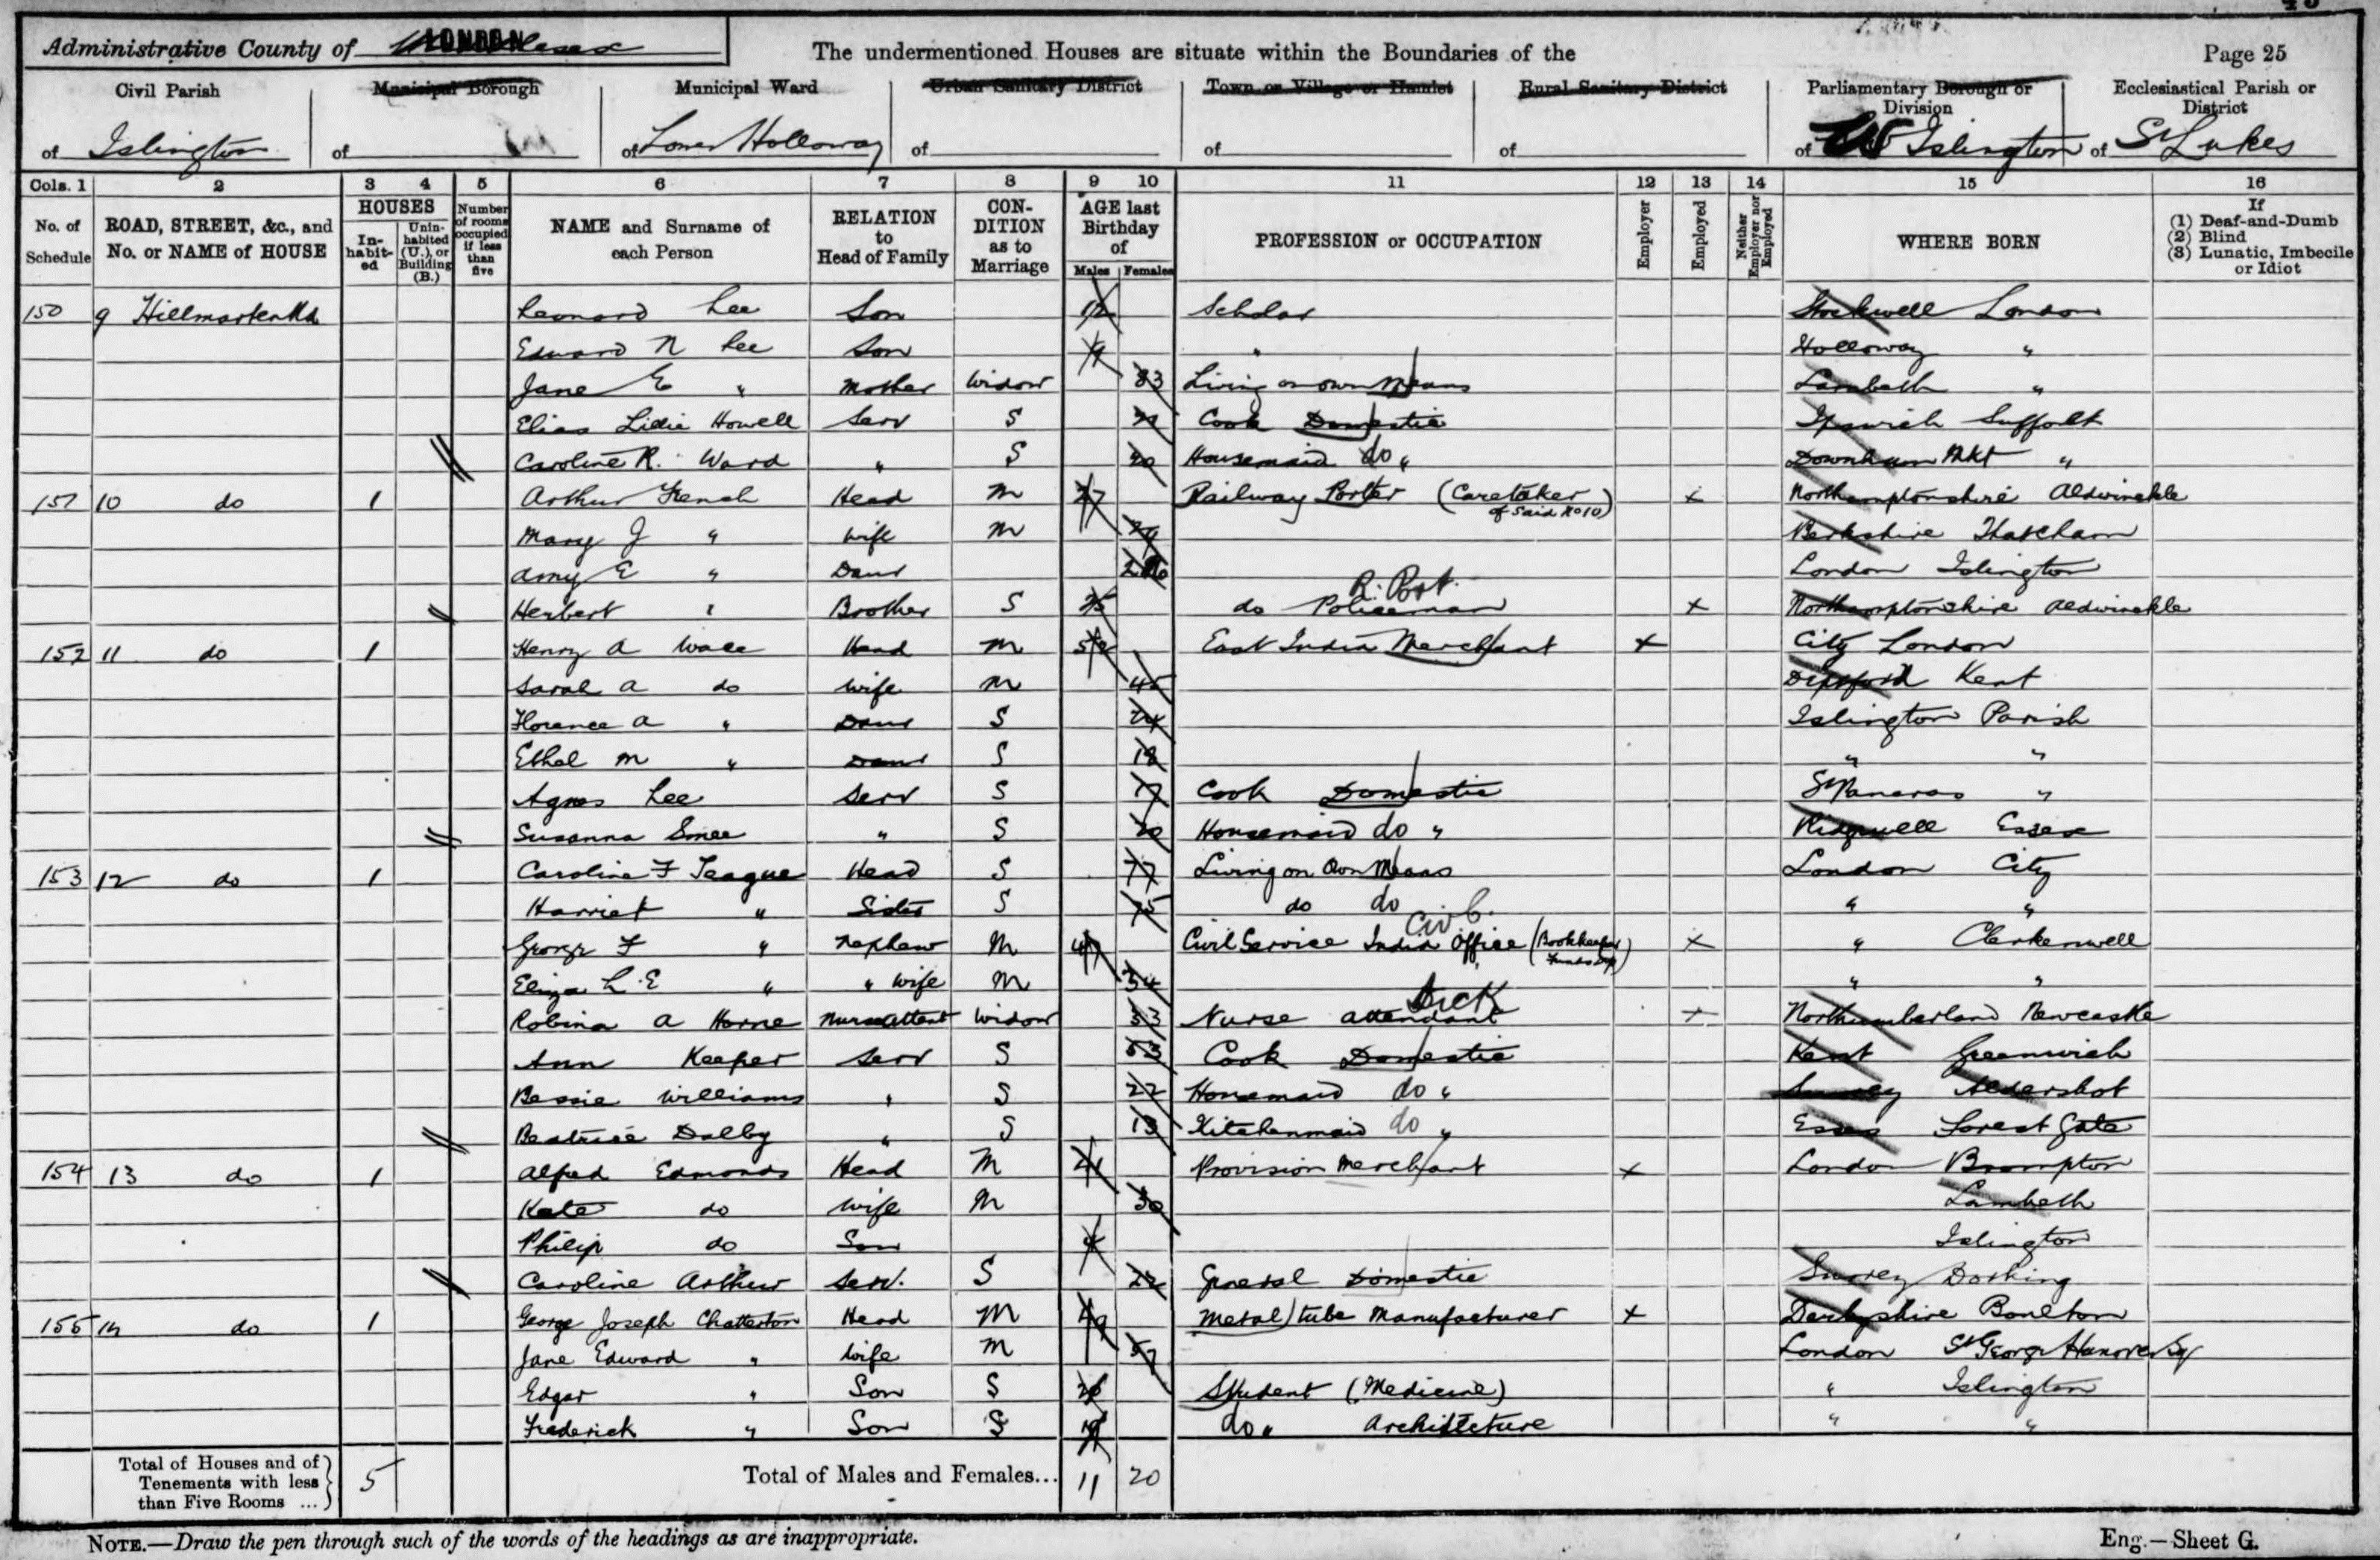 Administrative County of LONDON
The undermentioned Houses are situate within the Boundaries of the
Page 25
Civil Parish of Islington
Municipal Borough of
Municipal Ward of Lower Holloway
Urban Sanitary District of
Town or Village or Hamlet of
Rural Sanitary District of
Parliamentary Borough or Division of W Islington
Ecclesiastical Parish or District of St Lukes
Cols. 1 2 3 4 5 6 7 8 9 10 11 12 13 14 15 16
No. of Schedule
ROAD, STREET, &c., and No. or NAME of HOUSE
HOUSES
In-habit-ed
Unin-habited (U.), or Building (B.)
Number of rooms occupied if less than five
NAME and Surname of each Person
RELATION to Head of Family
CON-DITION as to Marriage
AGE last Birthday of
Males Females
PROFESSION or OCCUPATION
Employer
Employed
Neither Employer nor Employed
WHERE BORN
If
(1) Deaf-and-Dumb
(2) Blind
(3) Lunatic, Imbecile or Idiot
150 9 Hillmarton Rd Leonard Lee Son 12 Scholar Stockwell London
Edward N Lee Son 9 " Holloway "
Jane E " Mother Widow 83 Living on own Means Lambeth "
Howell Serv S Cook Domestic Ipswich Suffolk
Caroline R. Ward " S 20 Housemaid do " Downham Mkt "
151 10 do 1 Arthur French Head M 27 Railway Porter (Caretaker of Said No 10) x Northamptonshire Aldwinckle
Mary J " Wife M 29 Berkshire Thatcham
Amy E " Daur London Islington
Herbert " Brother S 25 do Policeman R. Port. x Northamptonshire Aldwinckle
152 11 do 1 Henry A Wace Head M 52 East India Merchant x City London
Sarah A do Wife M 45 Deptford Kent
Florence A " Daur S 24 Islington Parish
Ethel M " Daur S 18 " "
Agnes Lee Serv S Cook Domestic St Pancras "
Susanna Smee " S 20 Housemaid do " Ridgwell Essex
153 12 do 1 Caroline F Teague Head S 77 Living on Own Means London City
Harriet " Sister S 75 do do " "
George F " Nephew M 47 Civil Service India Office (Bookkeeper Funds Dep) Civ C. x " Clerkenwell
Eliza L. E " " Wife M 34 " "
Robina A Horne Nurse Attent Widow 53 Nurse attendant Sick x Northumberland Newcastle
Ann Keeper Serv S 53 Cook Domestic Kent Greenwich
Bessie Williams " S 22 Housemaid do " Surrey Aldershot
Beatrice Dalby " S 13 Kitchenmaid do " Essex Forest Gate
154 13 do 1 Alfred Edmonds Head M 41 Provision Merchant x London Brompton
Kate do Wife M 30 Lambeth
Philip do Son 4 Islington
Caroline Arthur Serv. S 22 General Domestic Surrey Dorking
155 14 do 1 George Joseph Chatterton Head M 49 Metal tube Manufacturer x Derbyshire Boulton
Jane Edward " Wife M 57 London St George Hanover Sq
Edgar " Son S Student (Medicine) " Islington
Frederick " Son S 19 do " Architecture " "
Total of Houses and of Tenements with less than Five Rooms ... 5
Total of Males and Females... 11 20
NOTE.—Draw the pen through such of the words of the headings as are inappropriate.
Eng.—Sheet G.